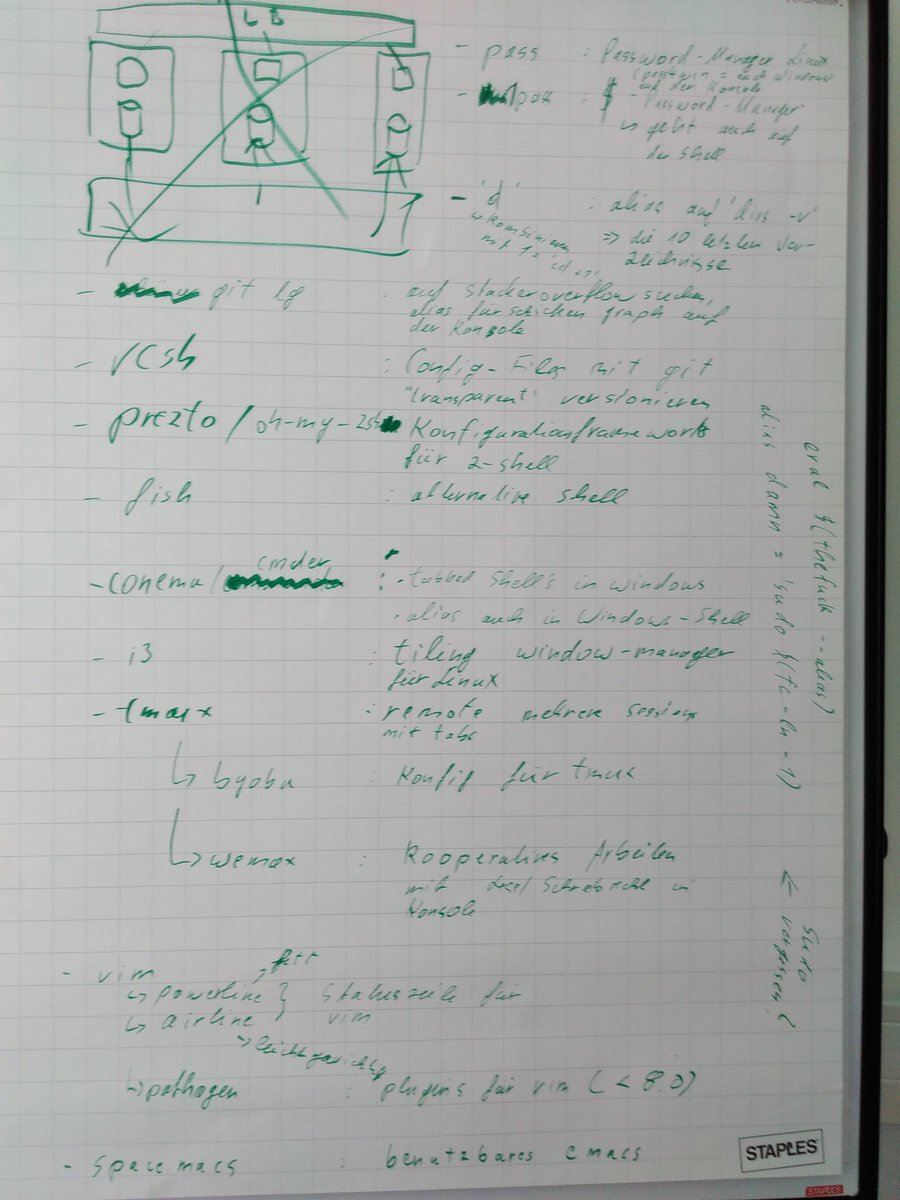 LB
- pass : Password-Manager Linux
auf der Konsole
- : Password-Manager
↳ geht auch auf
der shell
- 'd' : alias auf 'dirs -v'
↳ kombinieren
mit
⇒ die 10 letzten Ver-
zeichnisse
- git lg : auf stackoverflow suchen,
alias für schicken graph auf
der Konsole
- vcsh : Config-Files mit git
"transparent" versionieren
- prezto / oh-my-zsh Konfigurationsframework
für z-shell
- fish : alternative shell
cmder
- conemu / : · tabbed shell's in windows
· alias auch in Windows-Shell
- i3 : tiling window-manager
für Linux
- tmux : remote mehrere sessions
mit tabs
↳ byobu : Konfig für tmux
↳ wemux : Kooperatives Arbeiten
mit Lese/Schreibrecht in
Konsole
- vim
→ fett
↳ powerline } Statuszeile für
↳ airline vim
→ leichtgewichtig
↳ pathogen : plugins für vim (< 8.0)
- spacemacs : benutzbares emacs
eval $(thefuck --alias)
alias damn = 'sudo $(fc -ln -1)
← sudo
vergessen?
STAPLES
STAPLES